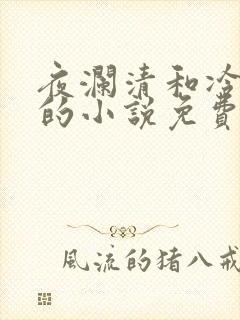 夜瀾清和冷
的小說免費
風流的猪八戒